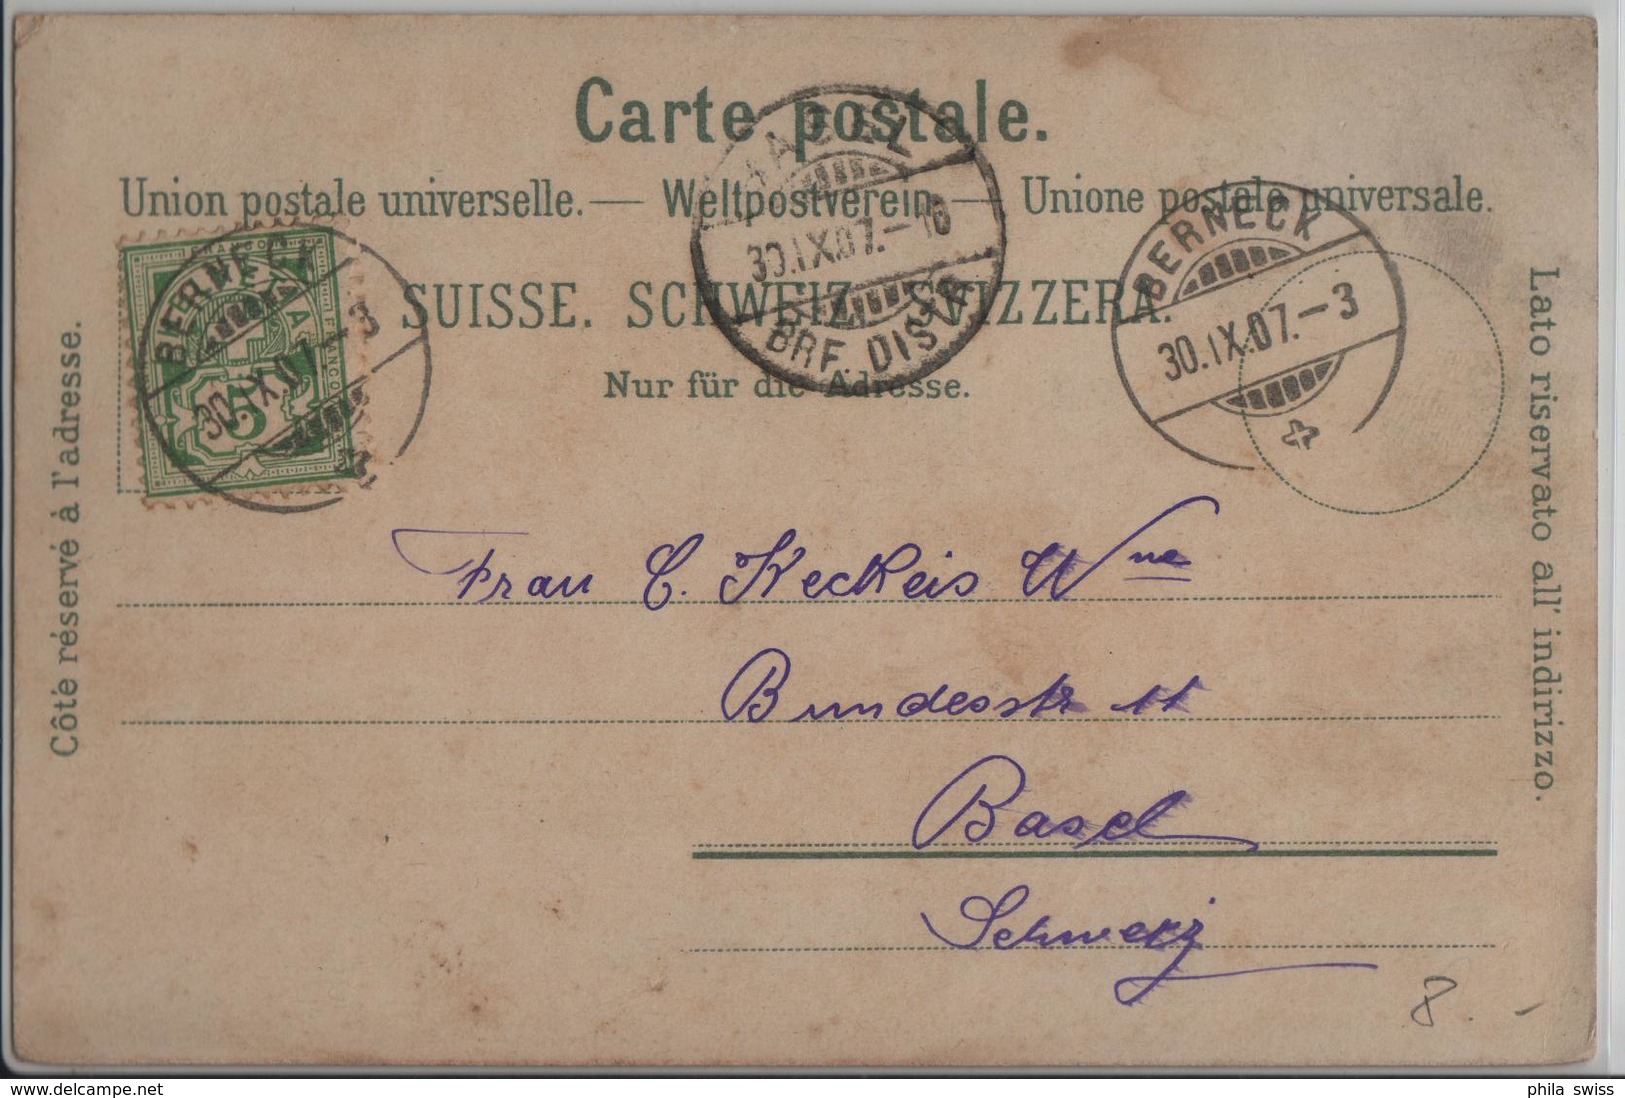 Carte postale.
Union postale universelle. — Weltpostverein — Unione postale universale.
SUISSE. SCHWEIZ. SVIZZERA.
Nur für die Adresse.
Côté réservé à l'adresse.
Lato riservato all' indirizzo.
FRANCO
FRANCO
5
BERNECK
30.IX.07.-3
BASEL
30.IX.07.-10
BRF. DISTR.
BERNECK
30.IX.07.-3
Frau C. Keckeis Wne
Bundesstr 11
Basel
Schweiz
8.-
delcampe.net
phila_swiss